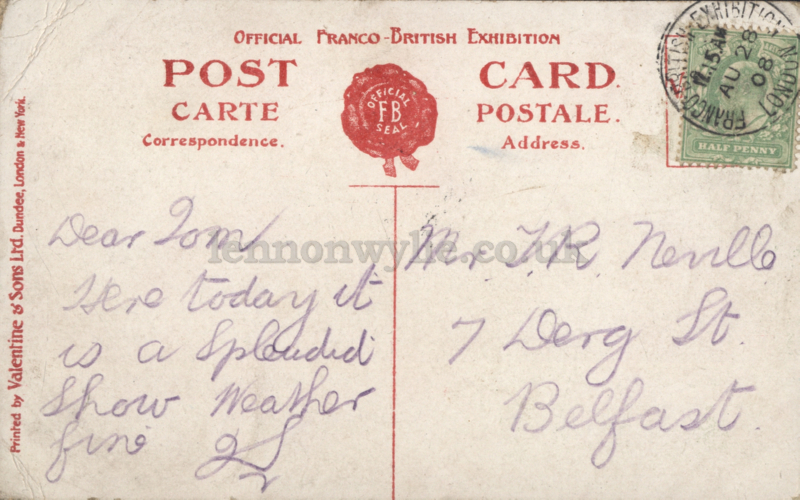 OFFICIAL FRANCO-BRITISH EXHIBITION
POST CARD.
CARTE POSTALE.
OFFICIAL
FB
SEAL
Correspondence. Address.
FRANCO BRITISH EXHIBITION LONDON
AU 28
08
HALF PENNY
Printed by Valentine & Sons Ltd. Dundee, London & New York.
lennonwylie.co.uk
Dear Tom
Here today it
is a Splendid
Show Weather
fine
Mr T.R. Neville
7 Derg St.
Belfast